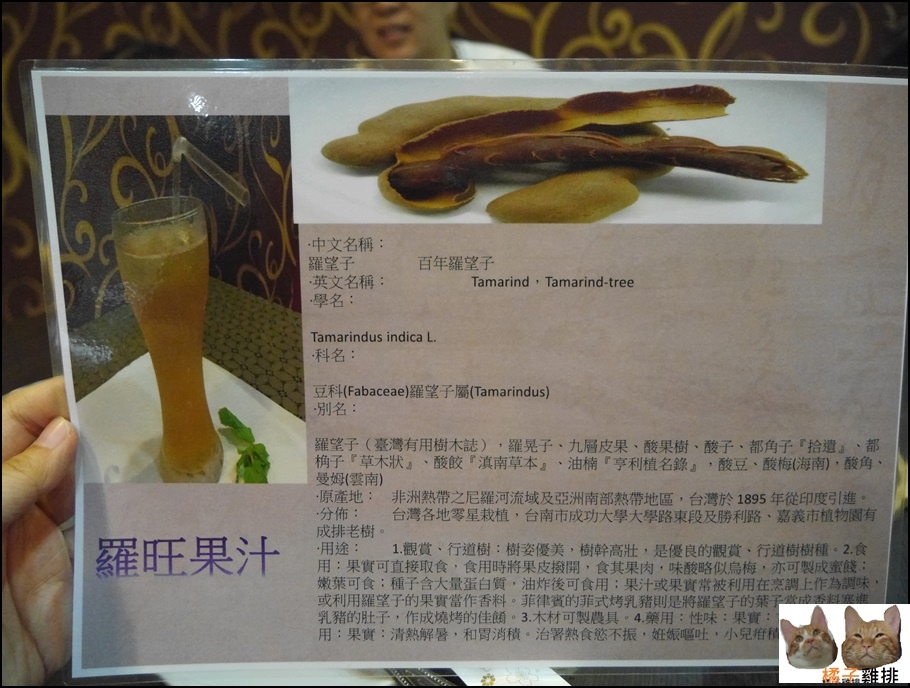 ·中文名稱：
羅望子 百年羅望子
·英文名稱： Tamarind，Tamarind-tree
·學名：
Tamarindus indica L.
·科名：
豆科(Fabaceae)羅望子屬(Tamarindus)
·別名：
羅望子（臺灣有用樹木誌），羅晃子、九層皮果、酸果樹、酸子、都角子『拾遺』、都
桷子『草木狀』、酸餃『滇南草本』、油楠『亨利植名錄』，酸豆、酸梅(海南)，酸角、
曼姆(雲南)
·原產地： 非洲熱帶之尼羅河流域及亞洲南部熱帶地區，台灣於 1895 年從印度引進。
·分佈： 台灣各地零星栽植，台南市成功大學大學路東段及勝利路、嘉義市植物園有
成排老樹。
·用途： 1.觀賞、行道樹：樹姿優美，樹幹高壯，是優良的觀賞、行道樹樹種。2.食
用：果實可直接取食，食用時將果皮撥開，食其果肉，味酸略似烏梅，亦可製成蜜餞；
嫩葉可食；種子含大量蛋白質，油炸後可食用；果汁或果實常被利用在烹調上作為調味，
或利用羅望子的果實當作香料。菲律賓的菲式烤乳豬則是將羅望子的葉子當成香料塞進
乳豬的肚子，作成燒烤的佳餚。3.木材可製農具。4.藥用：性味：果實：
用：果實：清熱解暑，和胃消積。治署熱食慾不振，妊娠嘔吐，小兒疳積
羅旺果汁
橘子雞排